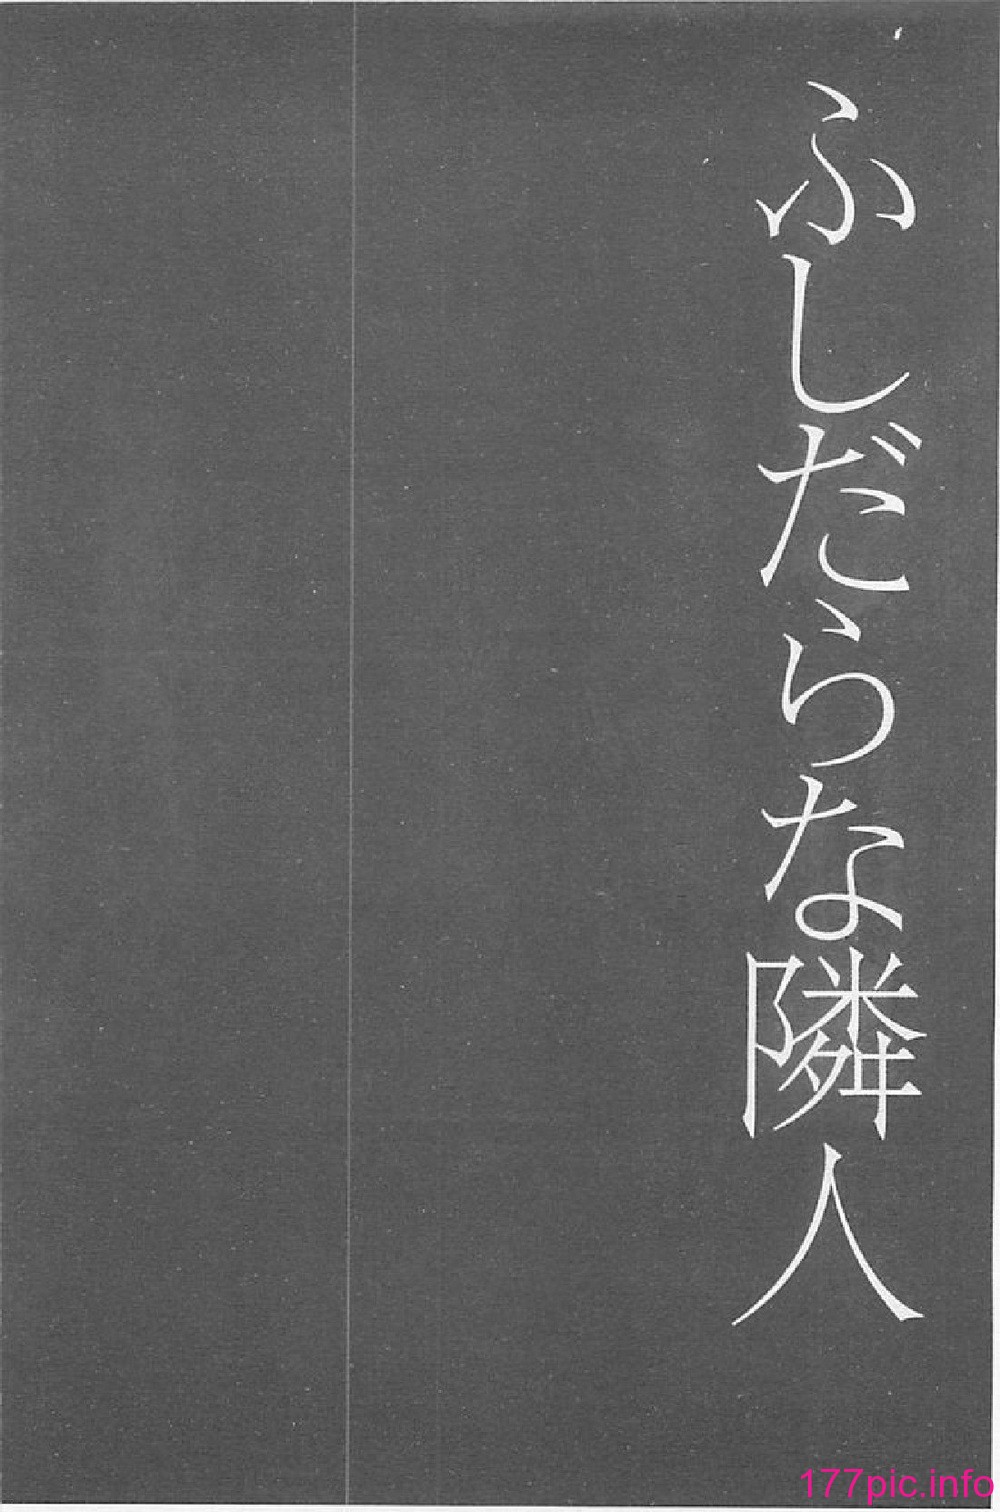 ふしだらな隣人
177pic.info